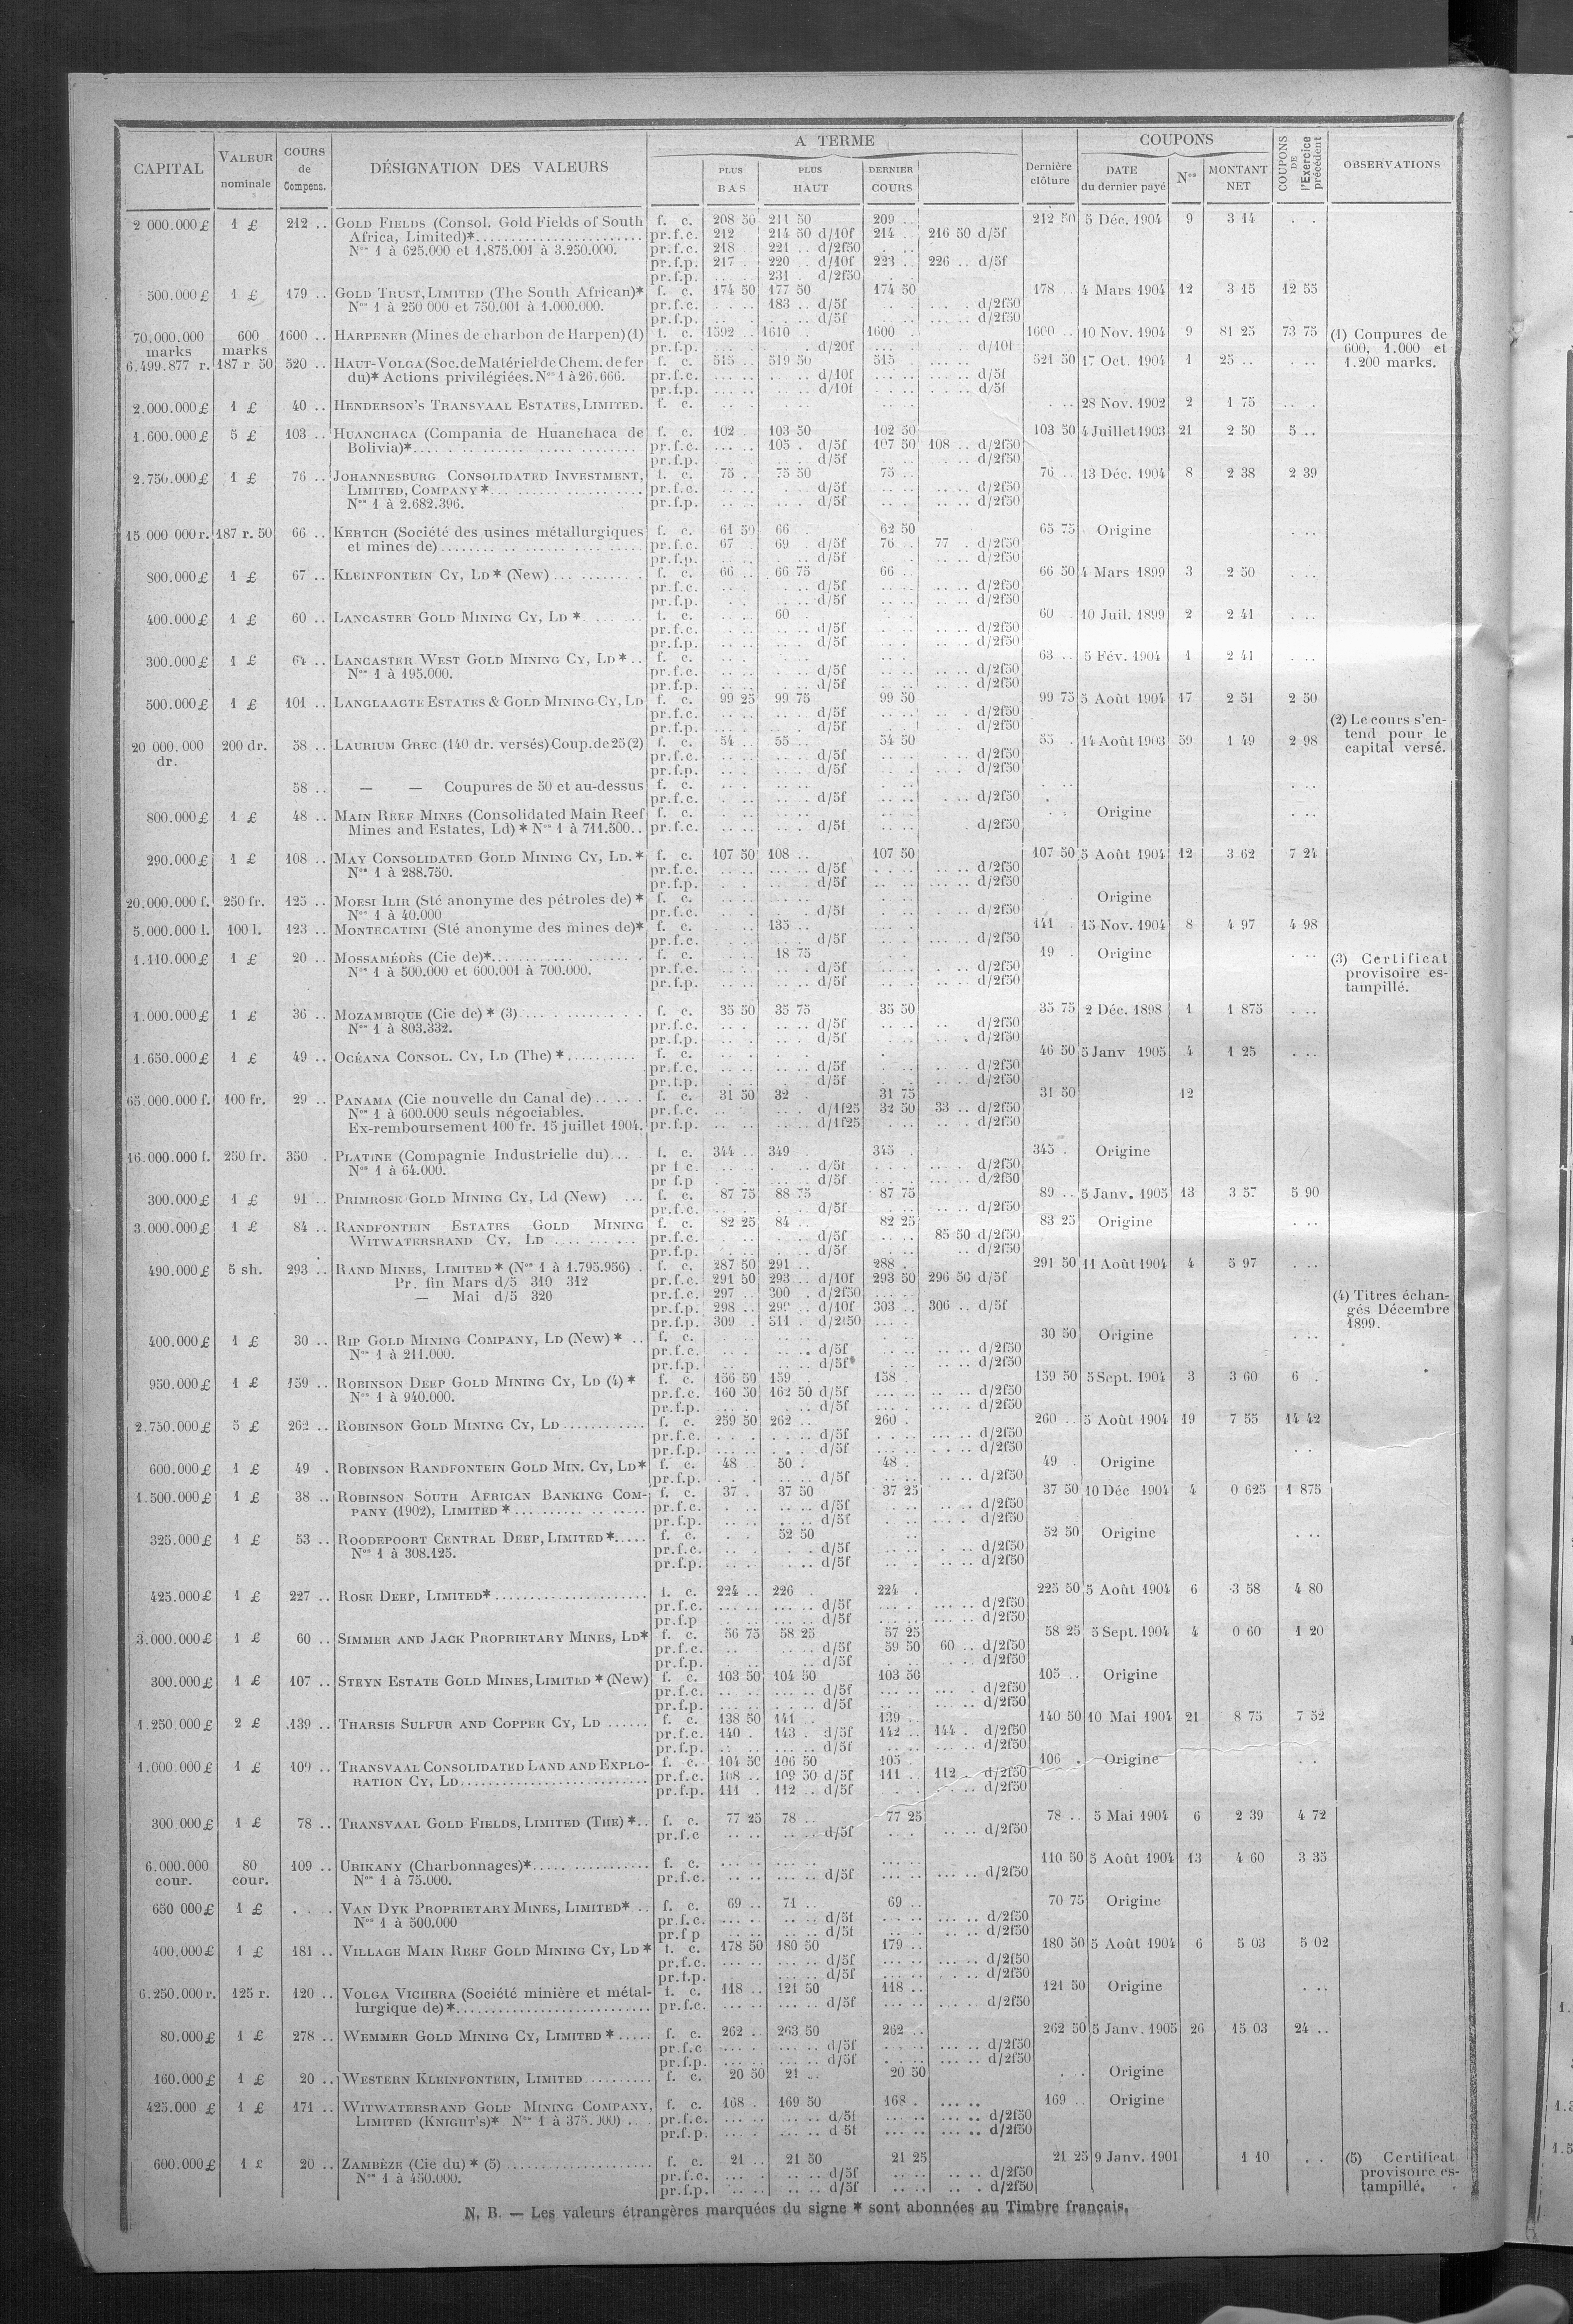 CAPITAL VALEUR nominale COURS de Compens. DÉSIGNATION DES VALEURS A TERME PLUS BAS PLUS HAUT DERNIER COURS Dernière clôture COUPONS DATE du dernier payé Nos MONTANT NET COUPONS DE l'Exercice précédent OBSERVATIONS
2 000.000 £ 1 £ 212 .. GOLD FIELDS (Consol. Gold Fields of South f. c. 208 50 211 50 209 .. 212 50 5 Déc. 1904 9 3 14 . .
Africa, Limited)* pr.f.c. 212 214 50 d/10f 214 216 50 d/5f
Nos 1 à 625.000 et 1.875.001 à 3.250.000. pr.f.c. 218 221 .. d/2f50
pr.f.p. 217 . 220 .. d/10f 223 .. 226 .. d/5f
pr.f.p. 231 . d/2f50
500.000 £ 1 £ 179 .. GOLD TRUST, LIMITED (The South African)* f. c. 174 50 177 50 174 50 178 4 Mars 1904 12 3 15 12 55
Nos 1 à 250 000 et 750.001 à 1.000.000. pr.f.c. 183 .. d/5f d/2f50
pr.f.p. d/5f d/2f50
70.000.000 600 1600 .. HARPENER (Mines de charbon de Harpen) (1) f. c. 1592 .. 1610 1600 . 1600 .. 10 Nov. 1904 9 81 25 73 75 (1) Coupures de
marks marks pr.f.p. d/20f d/10f 600, 1.000 et
6.499.877 r. 187 r 50 520 .. HAUT-VOLGA (Soc. de Matériel de Chem. de fer f. c. 515 .. 519 50 515 521 50 17 Oct. 1904 1 25 .. 1.200 marks.
du)* Actions privilégiées. Nos 1 à 26.666. pr.f.c. d/10f d/5f
pr.f.p. d/10f d/5f
2.000.000 £ 1 £ 40 .. HENDERSON'S TRANSVAAL ESTATES, LIMITED. f. c. 28 Nov. 1902 2 1 75
1.600.000 £ 5 £ 103 .. HUANCHACA (Compania de Huanchaca de f. c. 102 . 103 50 102 50 103 50 4 Juillet 1903 21 2 50 5 ..
Bolivia)* pr.f.c. 105 . d/5f 107 50 108 .. d/2f50
pr.f.p. d/5f d/2f50
2.750.000 £ 1 £ 76 .. JOHANNESBURG CONSOLIDATED INVESTMENT, f. c. 75 . 75 50 75 . 76 .. 13 Déc. 1904 8 2 38 2 39
LIMITED, COMPANY * pr.f.c. d/5f d/2f50
Nos 1 à 2.682.396. pr.f.p. d/5f d/2f50
15 000 000 r. 187 r. 50 66 .. KERTCH (Société des usines métallurgiques f. c. 61 50 66 . 62 50 65 75 Origine
et mines de) pr.f.c. 67 69 . d/5f 76 . 77 . d/2f50
pr.f.p. d/5f d/2f50
800.000 £ 1 £ 67 .. KLEINFONTEIN CY, LD * (New) f. c. 66 .. 66 75 66 . 66 50 4 Mars 1899 3 2 50
pr.f.c. d/5f d/2f50
pr.f.p. d/5f d/2f50
400.000 £ 1 £ 60 .. LANCASTER GOLD MINING CY, LD * f. c. 60 60 10 Juil. 1899 2 2 41
pr.f.c. d/5f d/2f50
pr.f.p. d/5f d/2f50
300.000 £ 1 £ 64 .. LANCASTER WEST GOLD MINING CY, LD * f. c. 63 .. 5 Fév. 1904 1 2 41
Nos 1 à 195.000. pr.f.c. d/5f d/2f50
pr.f.p. d/5f d/2f50
500.000 £ 1 £ 101 .. LANGLAAGTE ESTATES & GOLD MINING CY, LD f. c. 99 25 99 75 99 50 99 75 5 Août 1904 17 2 51 2 50
pr.f.c. d/5f d/2f50 (2) Le cours s'en-
pr.f.p. d/5f d/2f50 tend pour le
20 000.000 200 dr. 58 .. LAURIUM GREC (140 dr. versés) Coup. de 25 (2) f. c. 54 . 55 .. 54 50 55 . 14 Août 1903 59 1 49 2 98 capital versé.
dr. pr.f.c. d/5f d/2f50
pr.f.p. d/5f d/2f50
58 .. — — Coupures de 50 et au-dessus f. c.
pr.f.c. d/5f d/2f50
800.000 £ 1 £ 48 .. MAIN REEF MINES (Consolidated Main Reef f. c. Origine
Mines and Estates, Ld) * Nos 1 à 711.500.. pr.f.c. d/5f d/2f50
290.000 £ 1 £ 108 .. MAY CONSOLIDATED GOLD MINING CY, LD. * f. c. 107 50 108 .. 107 50 107 50 5 Août 1904 12 3 62 7 24
Nos 1 à 288.750. pr.f.c. d/5f d/2f50
pr.f.p. d/5f d/2f50
20.000.000 f. 250 fr. 125 .. MOESI ILIR (Sté anonyme des pétroles de) * f. c. Origine
Nos 1 à 40.000 pr.f.c. d/5f d/2f50
5.000.000 l. 100 l. 123 .. MONTECATINI (Sté anonyme des mines de)* f. c. 135 .. 141 15 Nov. 1904 8 4 97 4 98
pr.f.c. d/5f d/2f50
1.110.000 £ 1 £ 20 .. MOSSAMÉDÈS (Cie de)* f. c. 18 75 19 . Origine (3) Certificat
Nos 1 à 500.000 et 600.001 à 700.000. pr.f.c. d/5f d/2f50 provisoire es-
pr.f.p. d/5f d/2f50 tampillé.
1.000.000 £ 1 £ 36 .. MOZAMBIQUE (Cie de) * (3) f. c. 35 50 35 75 35 50 35 75 2 Déc. 1898 1 1 875
Nos 1 à 803.332. pr.f.c. d/5f d/2f50
pr.f.p. d/5f d/2f50
1.650.000 £ 1 £ 49 .. OCÉANA CONSOL. CY, LD (The) * f. c. 46 50 5 Janv 1905 4 1 25
pr.f.c. d/5f d/2f50
pr.f.p. d/5f d/2f50
65.000.000 f. 100 fr. 29 .. PANAMA (Cie nouvelle du Canal de) f. c. 31 50 32 . 31 75 31 50 12
Nos 1 à 600.000 seuls négociables. pr.f.c. d/1f25 32 50 33 .. d/2f50
Ex-remboursement 100 fr. 15 juillet 1904. pr.f.p. d/1f25 d/2f50
16.000.000 f. 250 fr. 350 . PLATINE (Compagnie Industrielle du) f. c. 344 .. 349 345 . 345 . Origine
Nos 1 à 64.000. pr f c. d/5f d/2f50
pr f.p d/5f d/2f50
300.000 £ 1 £ 91 .. PRIMROSE GOLD MINING CY, Ld (New) f. c. 87 75 88 75 87 75 89 .. 5 Janv. 1905 13 3 57 5 90
pr.f.c. d/5f d/2f50
3.000.000 £ 1 £ 84 .. RANDFONTEIN ESTATES GOLD MINING f. c. 82 25 84 .. 82 25 83 25 Origine
WITWATERSRAND CY. LD pr.f.c. d/5f 85 50 d/2f50
pr.f.p. d/5f d/2f50
490.000 £ 5 sh. 293 .. RAND MINES, LIMITED * (Nos 1 à 1.795.956) f. c. 287 50 291 .. 288 . 291 50 11 Août 1904 4 5 97
Pr. fin Mars d/5 310 312 pr.f.c. 291 50 293 .. d/10f 293 50 296 50 d/5f
— Mai d/5 320 pr.f.c. 297 .. 300 . d/2f50 (4) Titres échan-
pr.f.p. 298 .. 299 .. d/10f 303 .. 306 .. d/5f gés Décembre
pr.f.p. 309 . 311 . d/2f50 1899.
400.000 £ 1 £ 30 .. RIP GOLD MINING COMPANY, LD (New) * f. c. 30 50 Origine
Nos 1 à 211.000. pr.f.c. d/5f d/2f50
pr.f.p. d/5f d/2f50
950.000 £ 1 £ 159 .. ROBINSON DEEP GOLD MINING CY, LD (4) * f. c. 156 50 159 . 158 159 50 5 Sept. 1904 3 3 60 6 .
Nos 1 à 940.000. pr.f.c. 160 50 162 50 d/5f d/2f50
pr.f.p. d/5f d/2f50
2.750.000 £ 5 £ 262 .. ROBINSON GOLD MINING CY, LD f. c. 259 50 262 .. 260 . 260 .. 5 Août 1904 19 7 55 14 42
pr.f.c. d/5f d/2f50
pr.f.p. d/5f d/2f50
600.000 £ 1 £ 49 . ROBINSON RANDFONTEIN GOLD MIN. CY, LD* f. c. 48 .. 50 . 48 . 49 . Origine
pr.f.p. d/5f d/2f50
1.500.000 £ 1 £ 38 .. ROBINSON SOUTH AFRICAN BANKING COM- f. c. 37 . 37 50 37 25 37 50 10 Déc 1904 4 0 625 1 875
PANY (1902), LIMITED * pr.f.c. d/5f d/2f50
pr.f.p. d/5f d/2f50
325.000 £ 1 £ 53 .. ROODEPOORT CENTRAL DEEP, LIMITED * f. c. 52 50 52 50 Origine
Nos 1 à 308.125. pr.f.c. d/5f d/2f50
pr.f.p. d/5f d/2f50
425.000 £ 1 £ 227 .. ROSE DEEP, LIMITED* f. c. 224 .. 226 . 224 . 225 50 5 Août 1904 6 3 58 4 80
pr.f.c. d/5f d/2f50
pr.f.p d/5f d/2f50
3.000.000 £ 1 £ 60 .. SIMMER AND JACK PROPRIETARY MINES, LD* f. c. 56 75 58 25 57 25 58 25 5 Sept. 1904 4 0 60 1 20
pr.f.c. d/5f 59 50 60 .. d/2f50
pr.f.p. d/5f d/2f50
300.000 £ 1 £ 107 .. STEYN ESTATE GOLD MINES, LIMITED * (New) f. c. 103 50 104 50 103 50 105 .. Origine
pr.f.c. d/5f d/2f50
pr.f.p. d/5f d/2f50
1.250.000 £ 2 £ 139 .. THARSIS SULFUR AND COPPER CY, LD f. c. 138 50 141 . 139 .. 140 50 10 Mai 1904 21 8 75 7 52
pr.f.c. 140 . 143 . d/5f 142 .. 144 . d/2f50
pr.f.p. d/5f d/2f50
1.000.000 £ 1 £ 109 .. TRANSVAAL CONSOLIDATED LAND AND EXPLO- f. c. 104 50 106 50 105 . 106 . Origine
RATION CY, LD pr.f.c. 108 .. 109 50 d/5f 111 .. 112 . d/2f50
pr.f.p. 111 . 112 .. d/5f d/2f50
300.000 £ 1 £ 78 .. TRANSVAAL GOLD FIELDS, LIMITED (THE) * f. c. 77 25 78 .. 77 25 78 .. 5 Mai 1904 6 2 39 4 72
pr.f.c d/5f d/2f50
6.000.000 80 109 .. URIKANY (Charbonnages)* f. c. 110 50 5 Août 1904 13 4 60 3 35
cour. cour. Nos 1 à 75.000. pr.f.c. d/5f d/2f50
650 000 £ 1 £ VAN DYK PROPRIETARY MINES, LIMITED* f. c. 69 .. 71 . 69 .. 70 75 Origine
Nos 1 à 500.000 pr.f.c. d/5f d/2f50
pr.f p d/5f d/2f50
400.000 £ 1 £ 181 .. VILLAGE MAIN REEF GOLD MINING CY, LD * f. c. 178 50 180 50 179 .. 180 50 5 Août 1904 6 5 03 5 02
pr.f.c. d/5f d/2f50
pr.f.p. d/5f d/2f50
6.250.000 r. 125 r. 120 .. VOLGA VICHERA (Société minière et métal- f. c. 118 .. 121 50 118 .. 121 50 Origine
lurgique de) * pr.f.c. d/5f d/2f50
80.000 £ 1 £ 278 .. WEMMER GOLD MINING CY, LIMITED * f. c. 262 . 263 50 262 .. 262 50 5 Janv. 1905 26 15 03 24 ..
pr.f.c d/5f d/2f50
pr.f.p. d/5f d/2f50
160.000 £ 1 £ 20 .. WESTERN KLEINFONTEIN, LIMITED f. c. 20 50 21 .. 20 50 Origine
425.000 £ 1 £ 171 .. WITWATERSRAND GOLD MINING COMPANY, f. c. 168 . 169 50 168 . 169 .. Origine
LIMITED (KNIGHT'S)* Nos 1 à 375.000) pr.f.c. d/5f d/2f50
pr.f.p. d 5f d/2f50
600.000 £ 1 £ 20 .. ZAMBÈZE (Cie du) * (5) f. c. 21 .. 21 50 21 25 21 25 9 Janv. 1901 1 10 . . (5) Certificat
Nos 1 à 450.000. pr.f.c. d/5f d/2f50 provisoire es-
pr.f.p. d/5f d/2f50 tampillé.
N. B. — Les valeurs étrangères marquées du signe * sont abonnées au Timbre français.